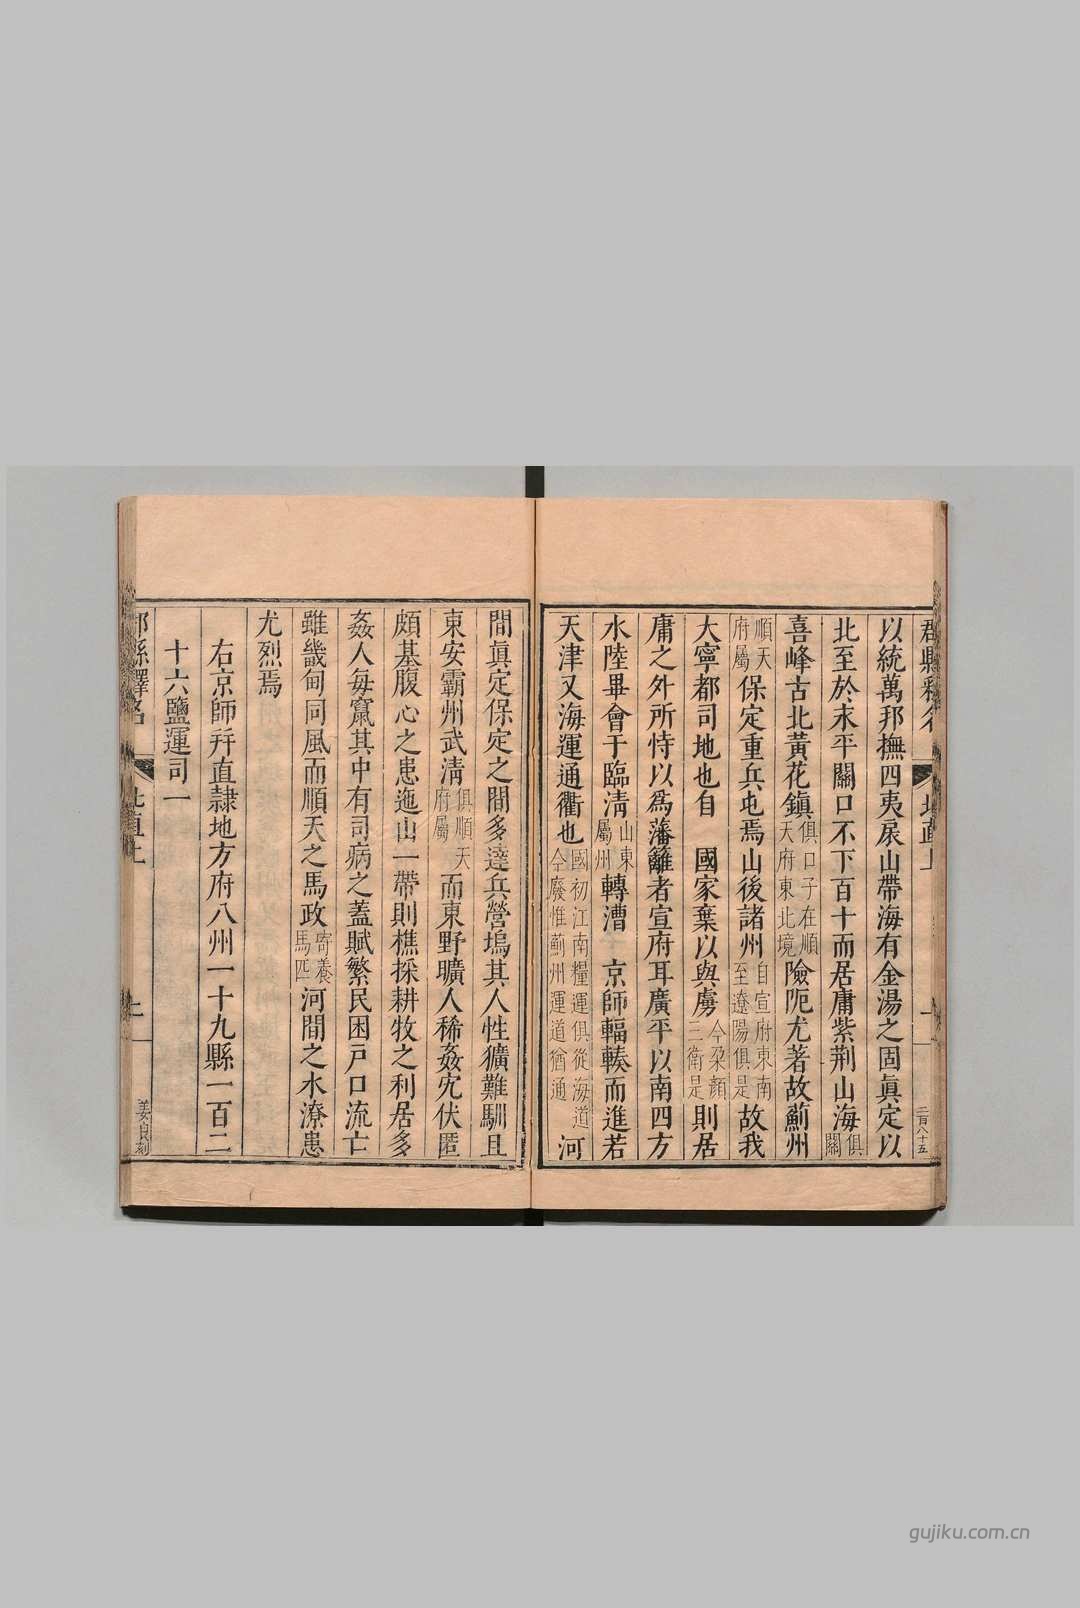 以統萬邦撫四夷扆山帶海有金湯之固眞定以
北至於永平關口不下百十而居庸紫荆山海俱關
喜峰古北黃花鎮俱口子在順天府東北境險阨尤著故薊州
順天府屬保定重兵屯焉山後諸州自宣府東南至遼陽俱是故我
大寧都司地也自 國家棄以與虜今朶顏三衛是則居
庸之外所恃以爲藩籬者宣府耳廣平以南四方
水陸畢會于臨清山東屬州轉漕 京師輻輳而進若
天津又海運通衢也國初江南糧運俱從海道今廢惟薊州運道猶通河
間眞定保定之間多達兵營塢其人性獷難馴且
東安霸州武清俱順天府屬而東野曠人稀姦宄伏匿
頗基腹心之患迤山一帶則樵採耕牧之利居多
姦人每竄其中有司病之蓋賦繁民困戶口流亡
雖畿甸同風而順天之馬政寄養馬匹河間之水潦患
尤烈焉
右京師幷直隸地方府八州一十九縣一百二
十六鹽運司一
郡縣釋名
北直上
二
姜良刻
二百八十五
gujiku.com.cn